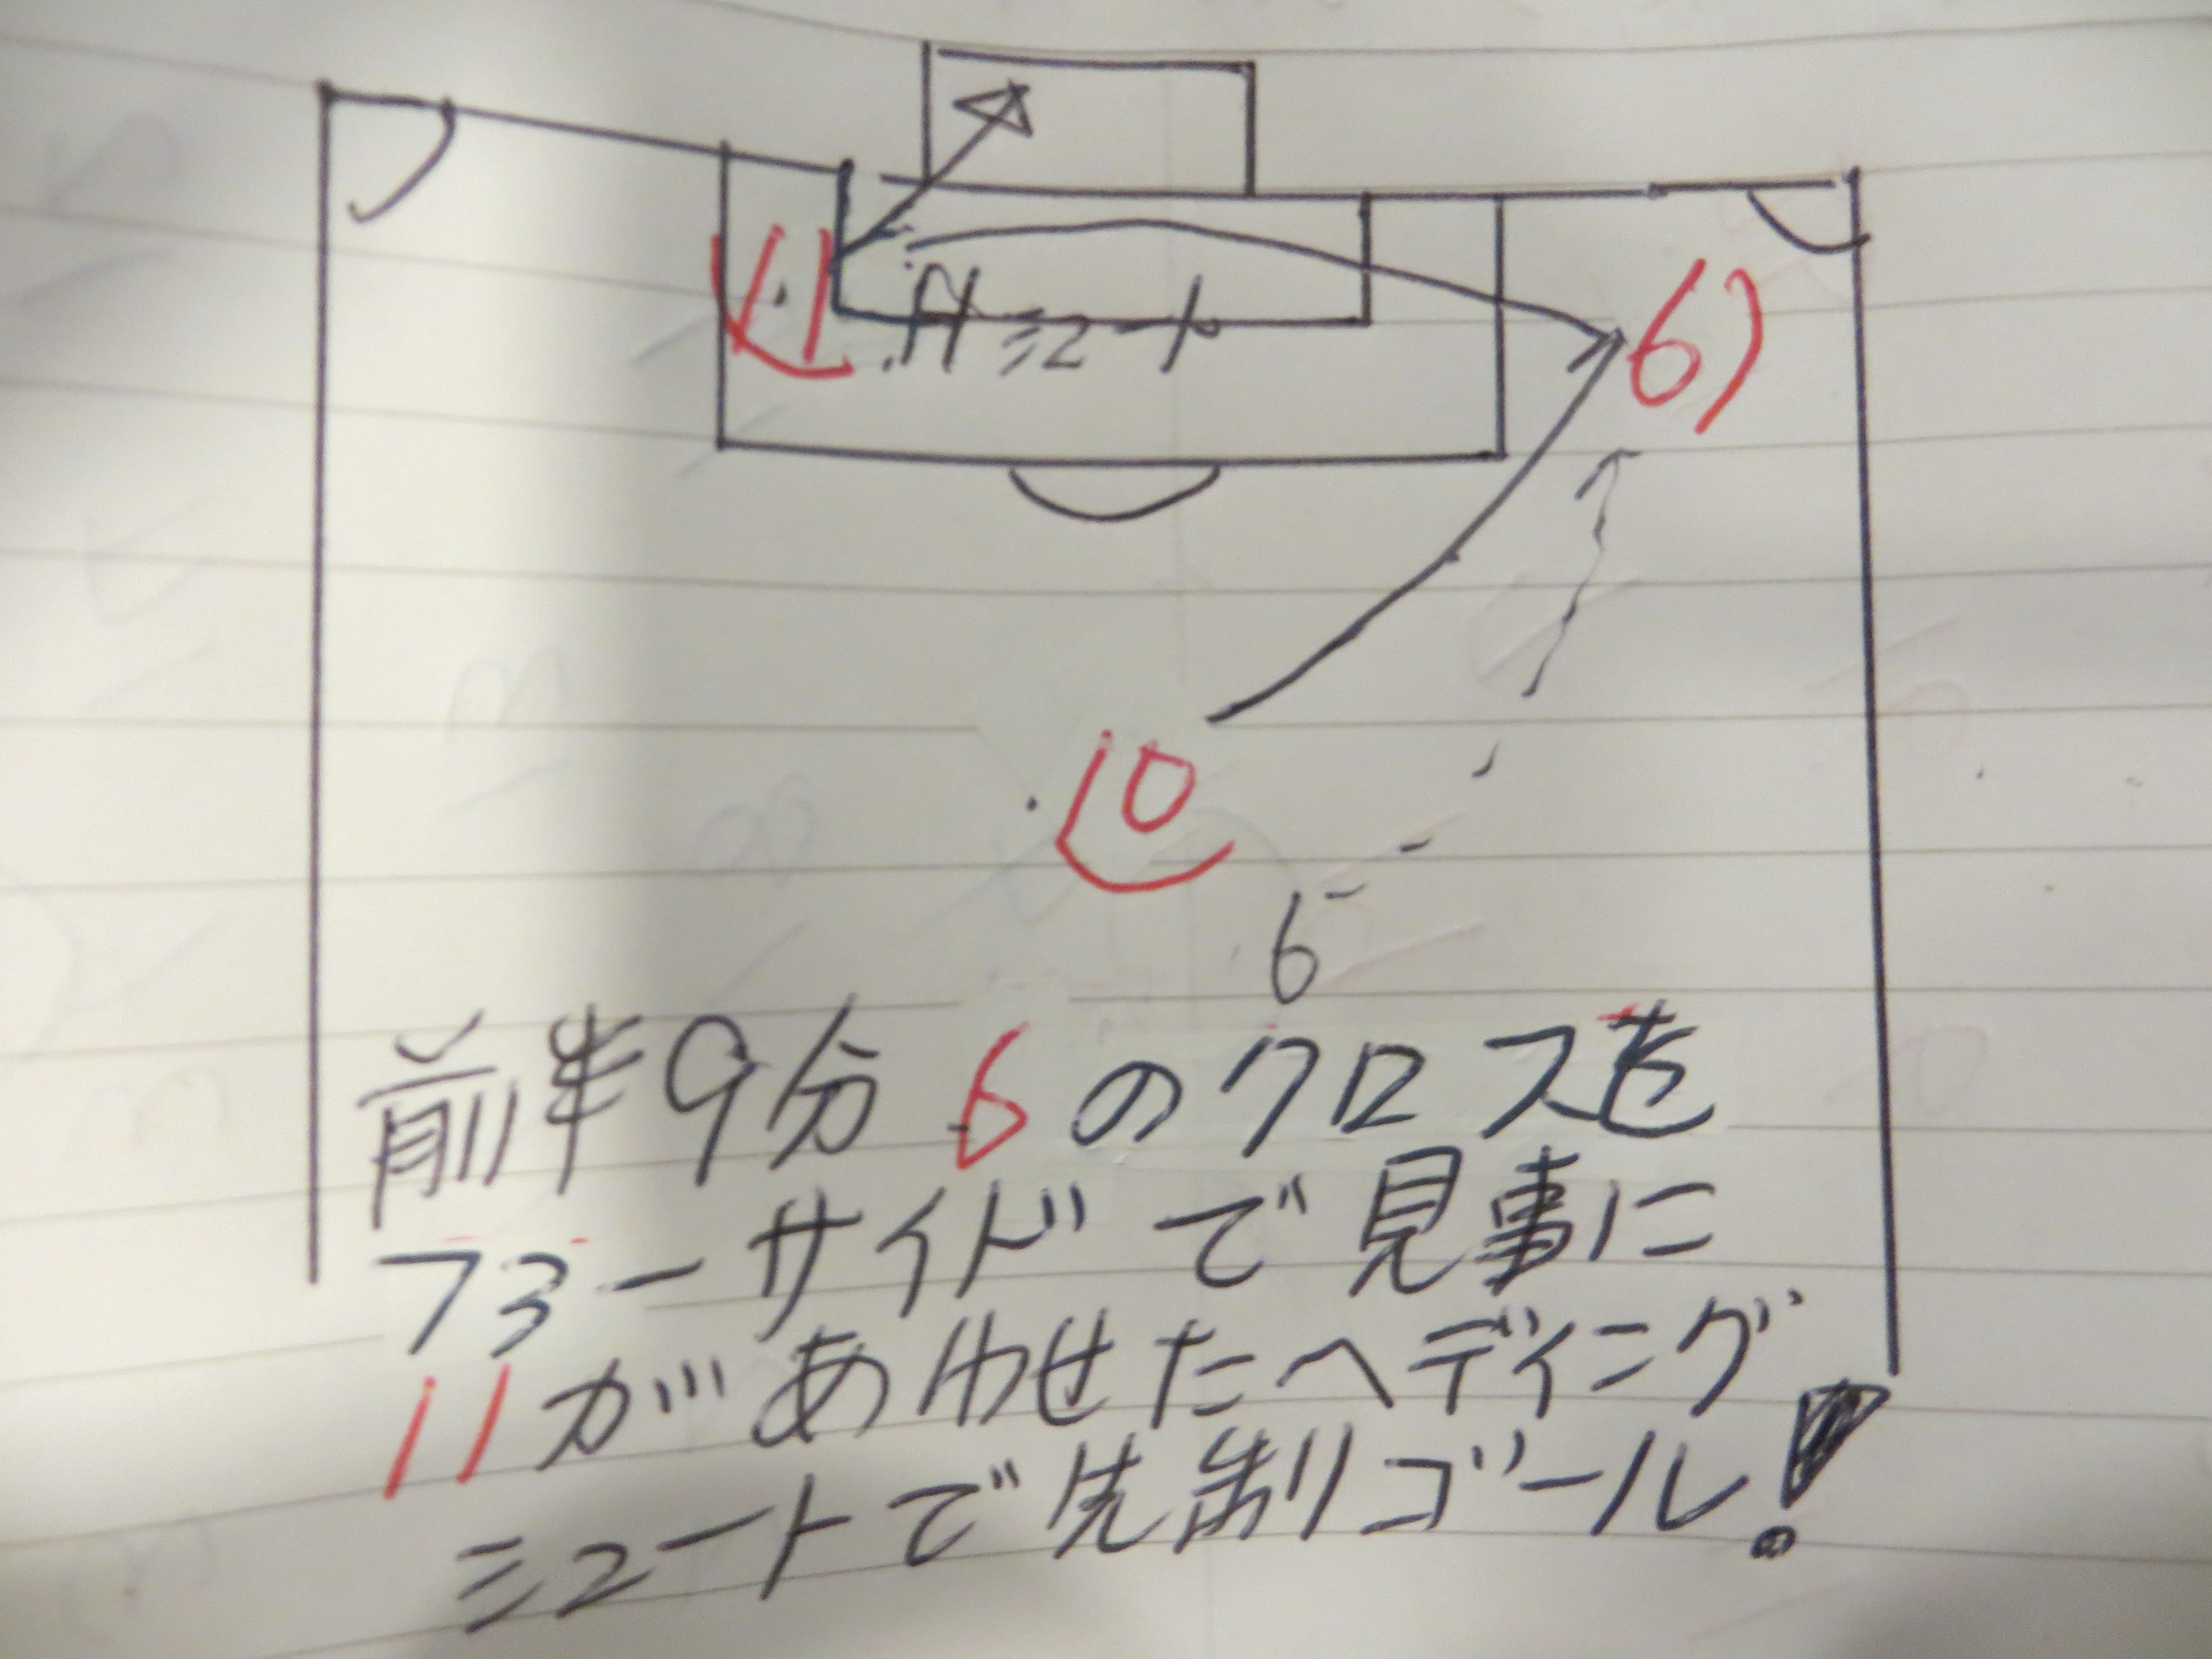 11 .Hシュート 6)
10
6
前半9分 6のクロスを
フアーサイドで見事に
11があわせたヘディング
シュートで先制ゴール!